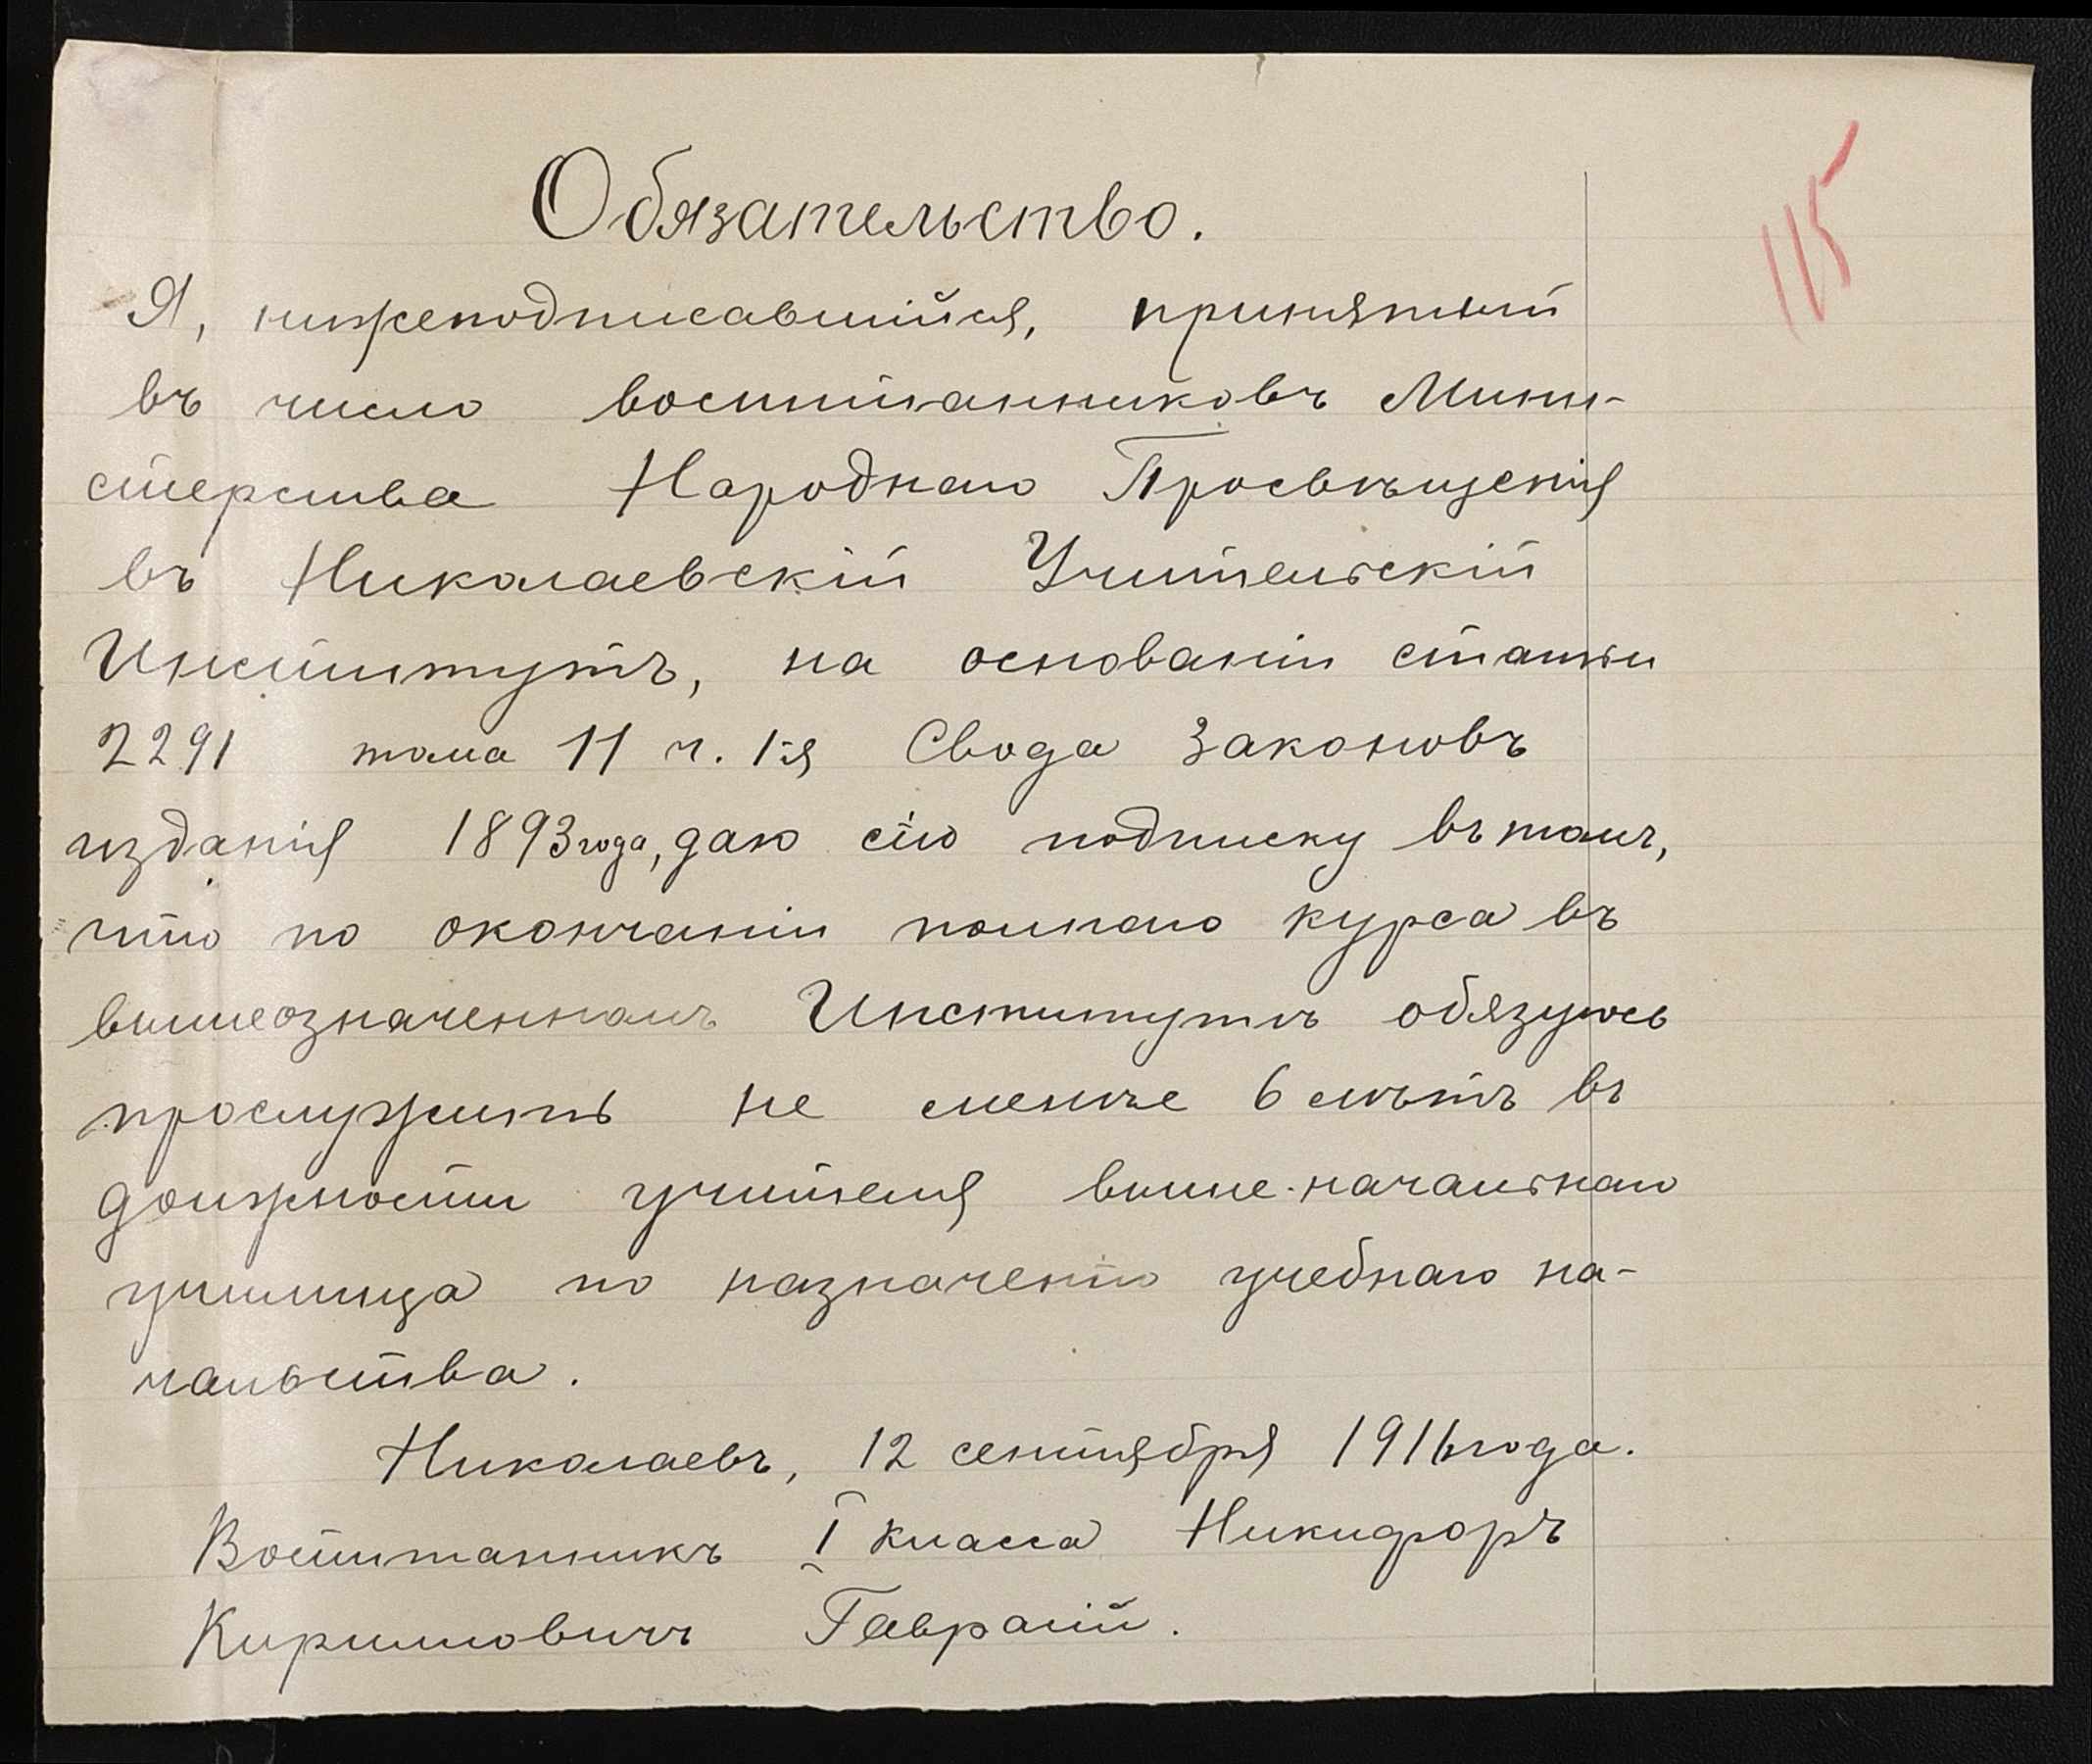 Обязательство.
115
Я, нижеподписавшійся, принятый
въ число воспитанниковъ Мини-
стерства Народнаго Просвѣщенія
въ Николаевскій Учительскій
Институтъ, на основаніи статьи
2291 тома 11 ч. 1-я Свода Законовъ
изданія 1893 года, даю сію подписку въ томъ,
что по окончаніи полнаго курса въ
вышеозначенномъ Институтѣ обязуюсь
прослужить не менѣе 6 лѣтъ въ
должности учителя высше-начальнаго
училища по назначенію учебнаго на-
чальства.
Николаевъ, 12 сентября 1916 года.
Воспитанникъ I класса Никифоръ
Кирилловичъ